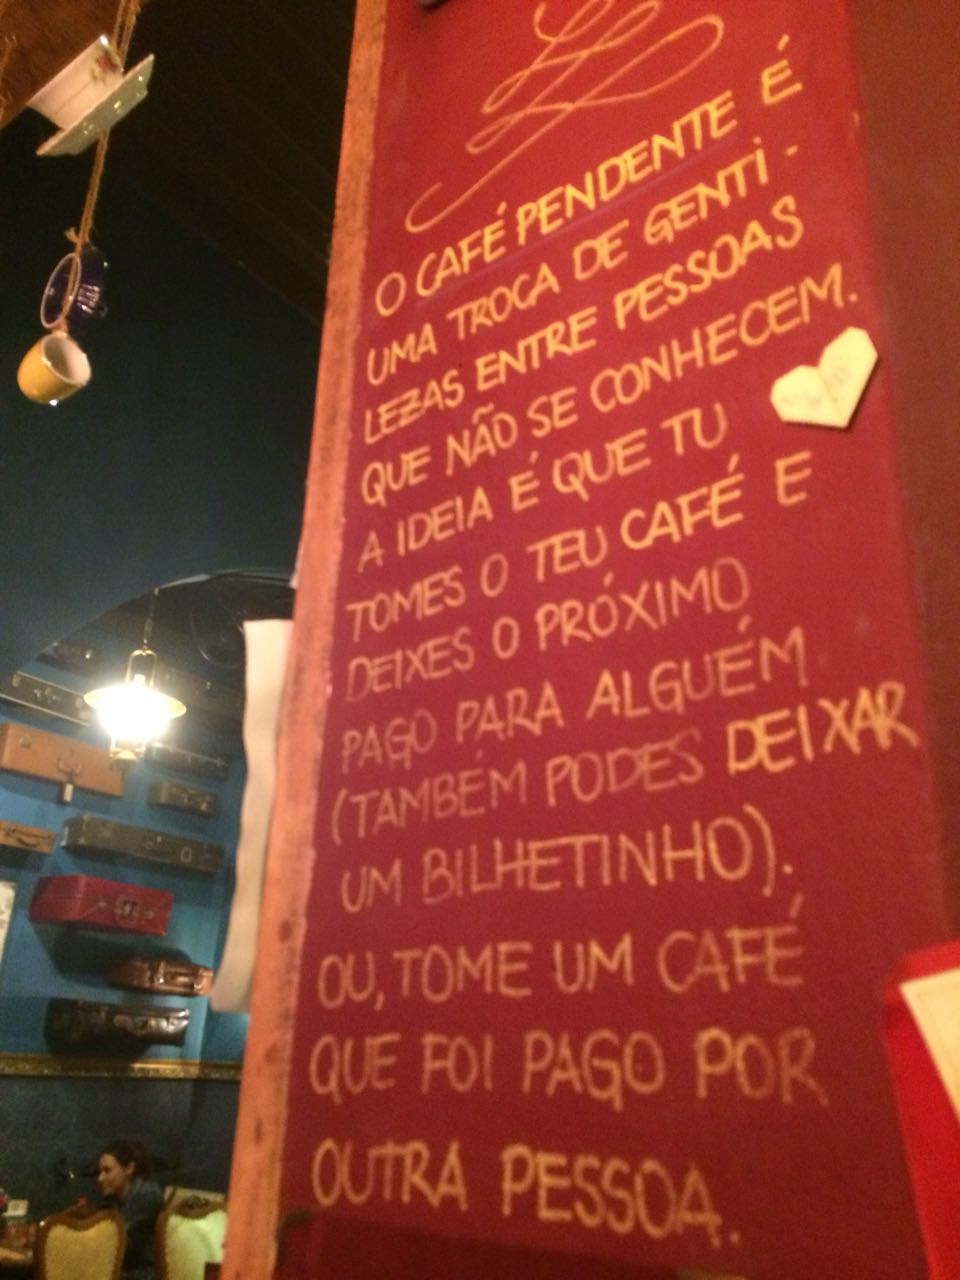 O CAFÉ PENDENTE É
UMA TROCA DE GENTI-
LEZAS ENTRE PESSOAS
QUE NÃO SE CONHECEM.
A IDEIA É QUE TU
TOMES O TEU CAFÉ E
DEIXES O PRÓXIMO
PAGO PARA ALGUÉM
(TAMBÉM PODES DEIXAR
UM BILHETINHO).
OU, TOME UM CAFÉ
QUE FOI PAGO POR
OUTRA PESSOA.